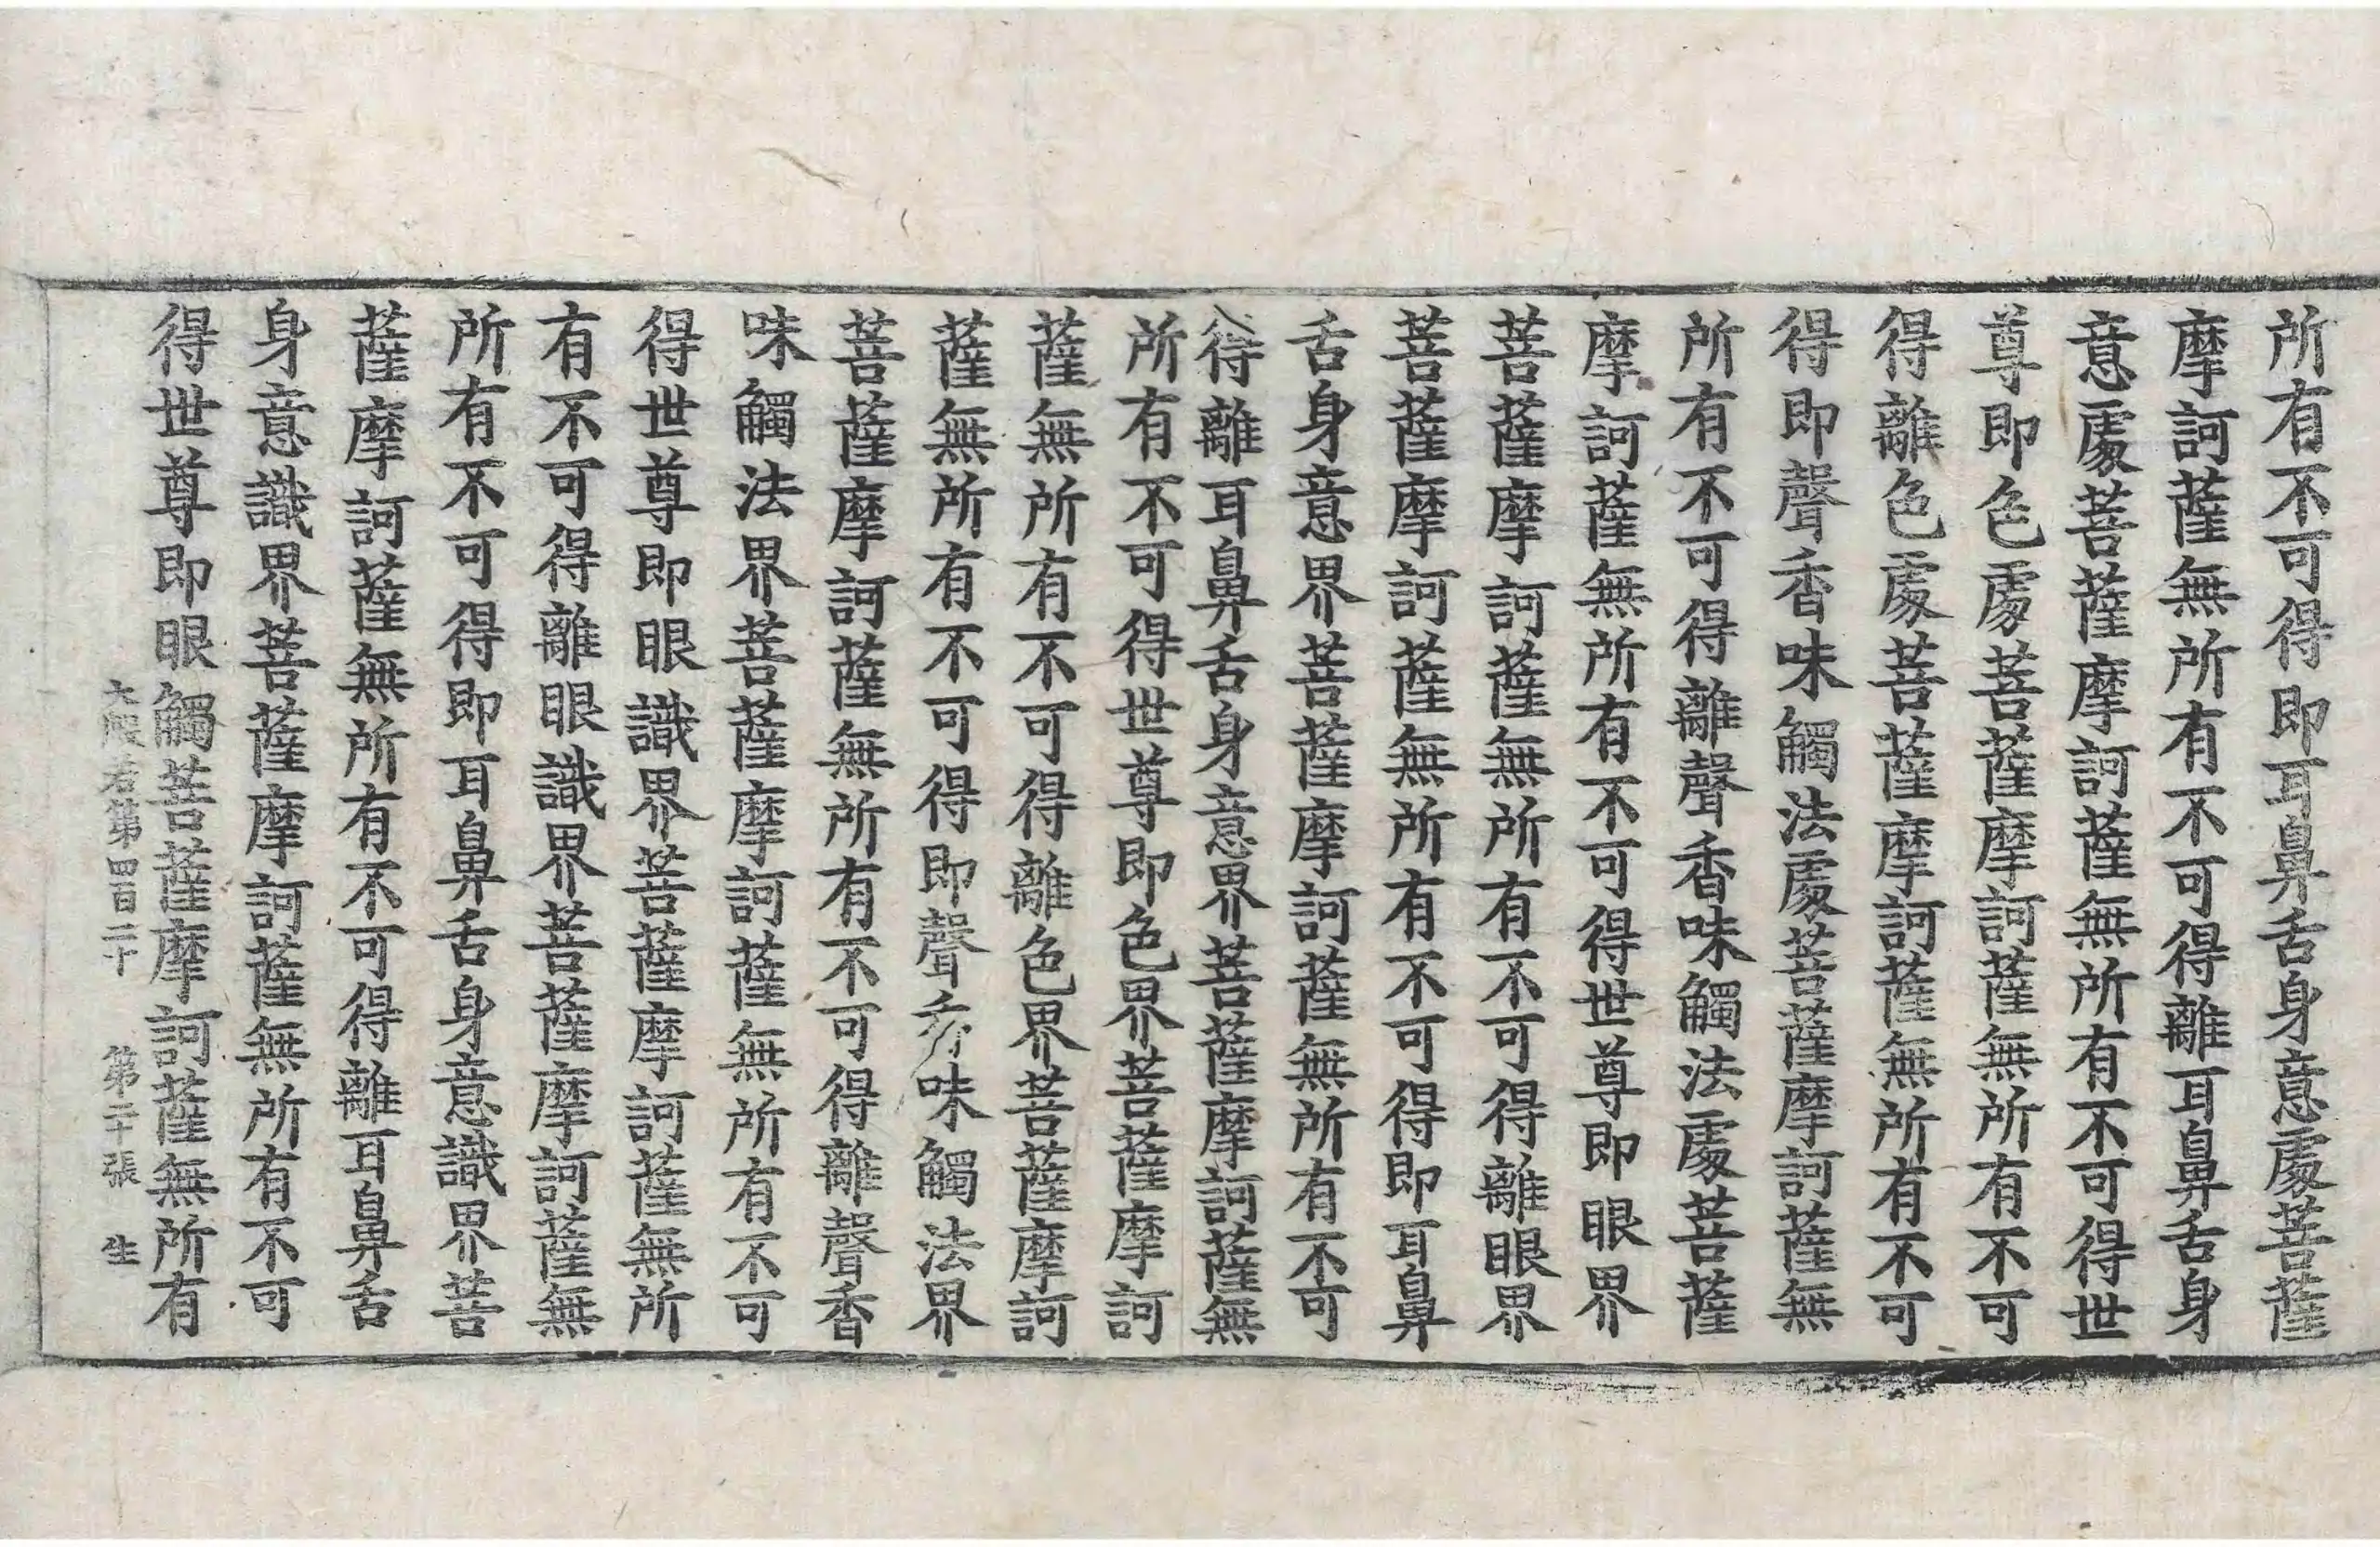 所有不可得即耳鼻舌身意處菩薩
摩訶薩無所有不可得離耳鼻舌身
意處菩薩摩訶薩無所有不可得世
尊即色處菩薩摩訶薩無所有不可
得離色處菩薩摩訶薩無所有不可
得即聲香味觸法處菩薩摩訶薩無
所有不可得離聲香味觸法處菩薩
摩訶薩無所有不可得世尊即眼界
菩薩摩訶薩無所有不可得離眼界
菩薩摩訶薩無所有不可得即耳鼻
舌身意界菩薩摩訶薩無所有不可
得離耳鼻舌身意界菩薩摩訶薩無
所有不可得世尊即色界菩薩摩訶
薩無所有不可得離色界菩薩摩訶
薩無所有不可得即聲香味觸法界
菩薩摩訶薩無所有不可得離聲香
味觸法界菩薩摩訶薩無所有不可
得世尊即眼識界菩薩摩訶薩無所
有不可得離眼識界菩薩摩訶薩無
所有不可得即耳鼻舌身意識界菩
薩摩訶薩無所有不可得離耳鼻舌
身意識界菩薩摩訶薩無所有不可
得世尊即眼觸菩薩摩訶薩無所有
大般若第四百二十 第二十張 生